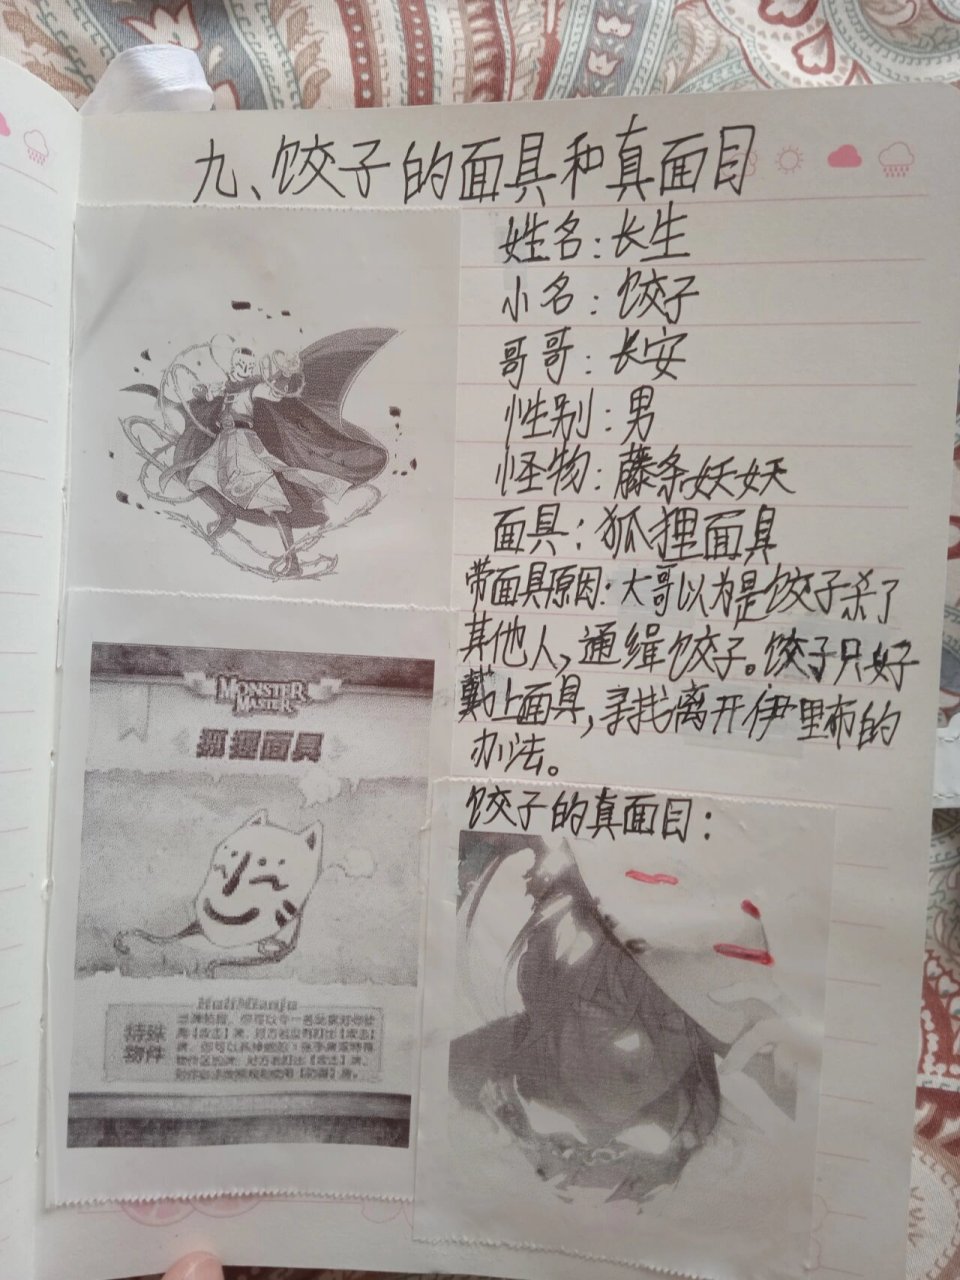 九、饺子的面具和真面目
姓名：长生
小名：饺子
哥哥：长安
性别：男
怪物：藤条妖妖
面具：狐狸面具
带面具原因：大哥以为是饺子杀了
其他人，通缉饺子。饺子只好
戴上面具，寻找离开伊里布的
办法。
MONSTER
MASTER
狐狸面具
HuLiMianJu
特殊
物件
饺子的真面目：